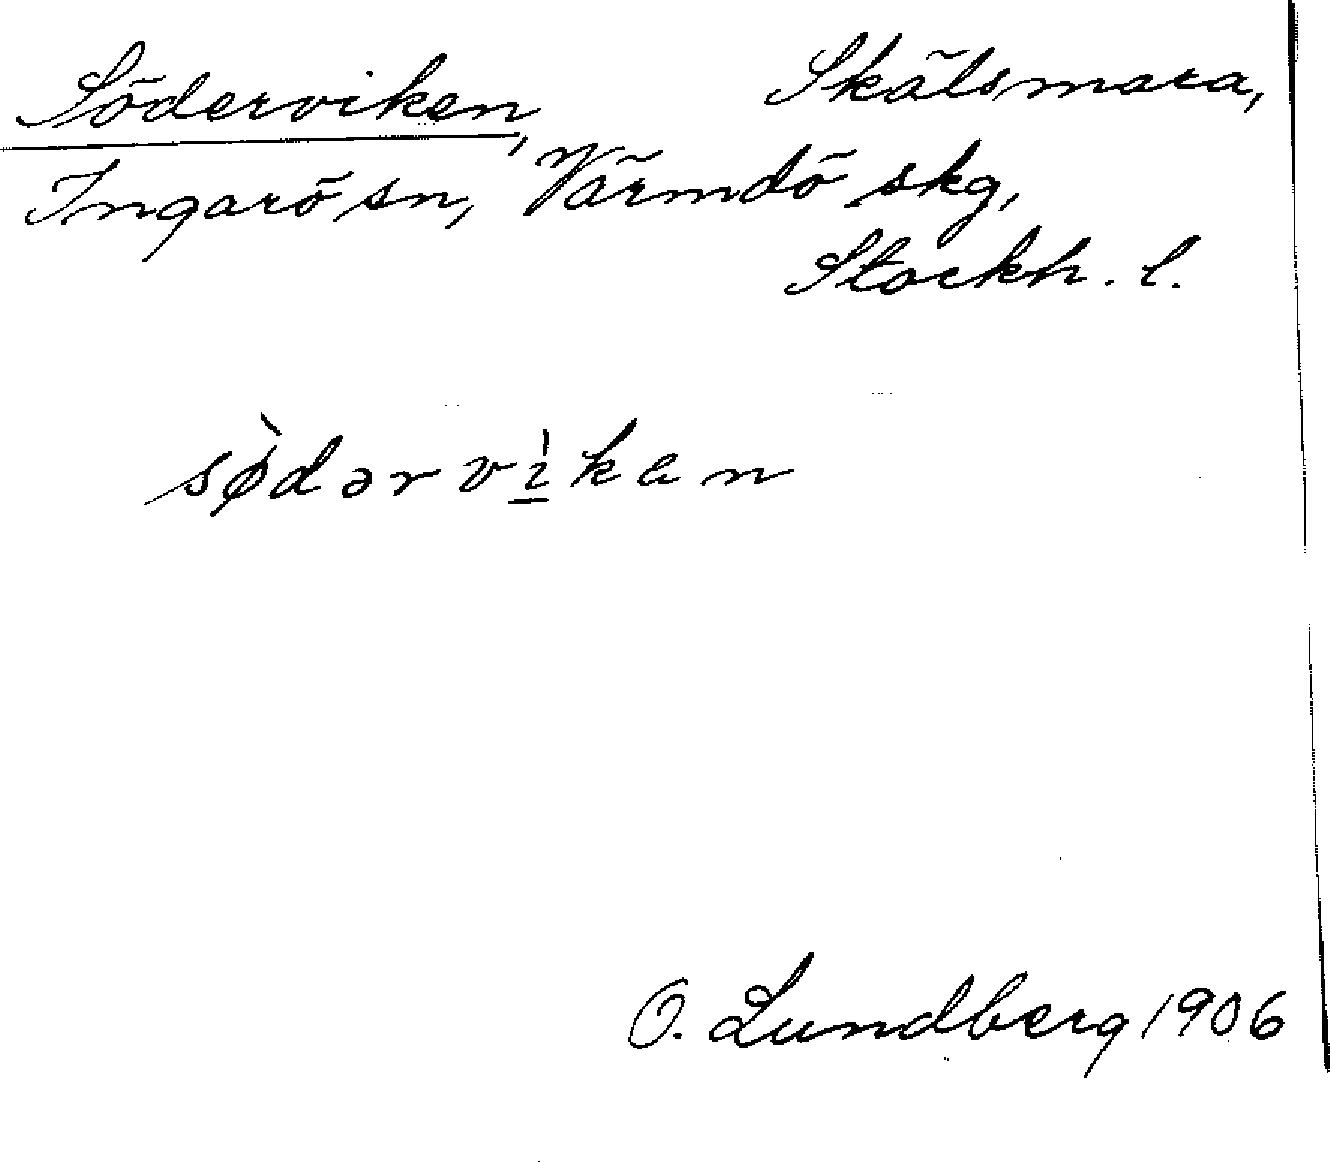 Söderviken, Skälsmara,
Ingarö sn, Värmdö skg,
Stockh. l.
sø̀dərvı̲̀kan
O. Lundberg 1906